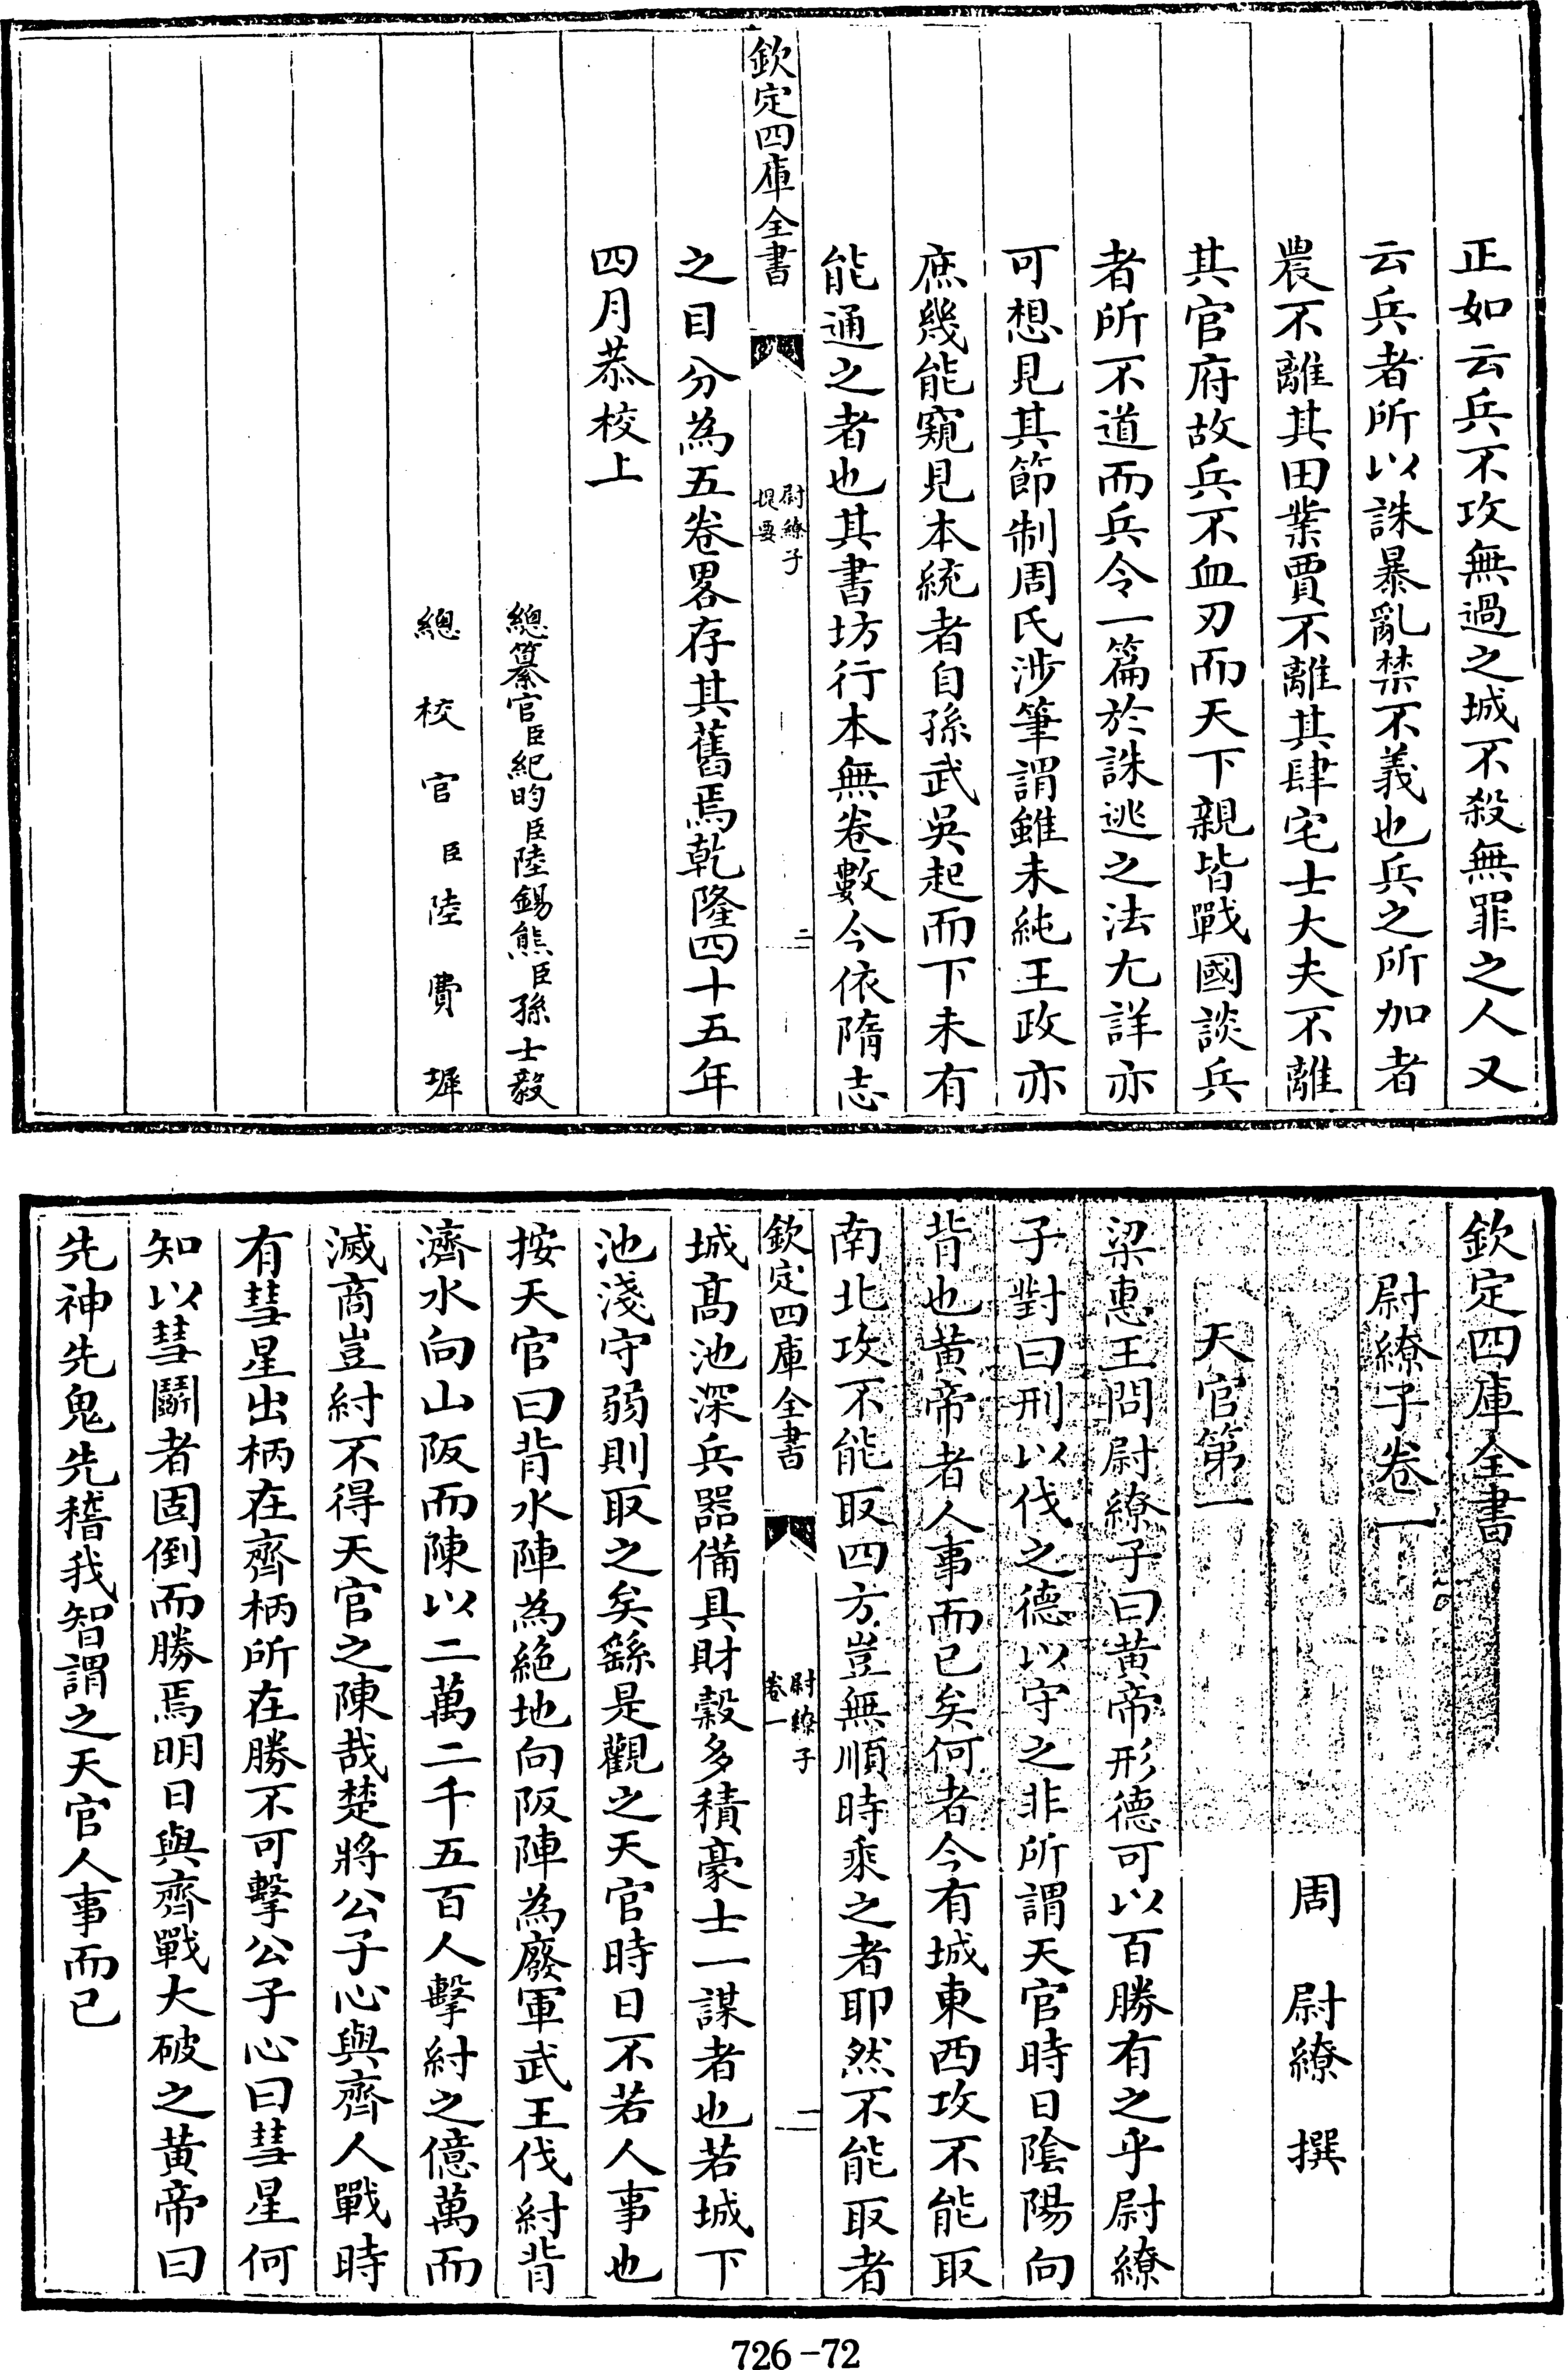 正如云兵不攻無過之城不殺無罪之人又
云兵者所以誅暴亂禁不義也兵之所加者
農不離其田業賈不離其肆宅士大夫不離
其官府故兵不血刃而天下親皆戰國談兵
者所不道而兵令一篇於誅逃之法尤詳亦
可想見其節制周氏涉筆謂雖未純王政亦
庶幾能窺見本統者自孫武吳起而下未有
能通之者也其書坊行本無卷數今依隋志
欽定四庫全書
尉繚子
提要
二
之目分為五卷畧存其舊焉乾隆四十五年
四月恭校上
總纂官臣紀昀臣陸錫熊臣孫士毅
總校官臣陸費墀
欽定四庫全書
尉繚子卷一
周尉繚撰
天官第一
梁惠王問尉繚子曰黄帝形德可以百勝有之乎尉繚
子對曰刑以伐之德以守之非所謂天官時日陰陽向
背也黄帝者人事而已矣何者今有城東西攻不能取
南北攻不能取四方豈無順時乘之者耶然不能取者
欽定四庫全書
尉繚子
卷一
一
城高池深兵器備具財穀多積豪士一謀者也若城下
池淺守弱則取之矣繇是觀之天官時日不若人事也
按天官曰背水陣為絶地向阪陣為廢軍武王伐紂背
濟水向山阪而陳以二萬二千五百人擊紂之億萬而
滅商豈紂不得天官之陳哉楚將公子心與齊人戰時
有彗星出柄在齊柄所在勝不可擊公子心曰彗星何
知以彗鬭者固倒而勝焉明日與齊戰大破之黄帝曰
先神先鬼先稽我智謂之天官人事而已
726-72